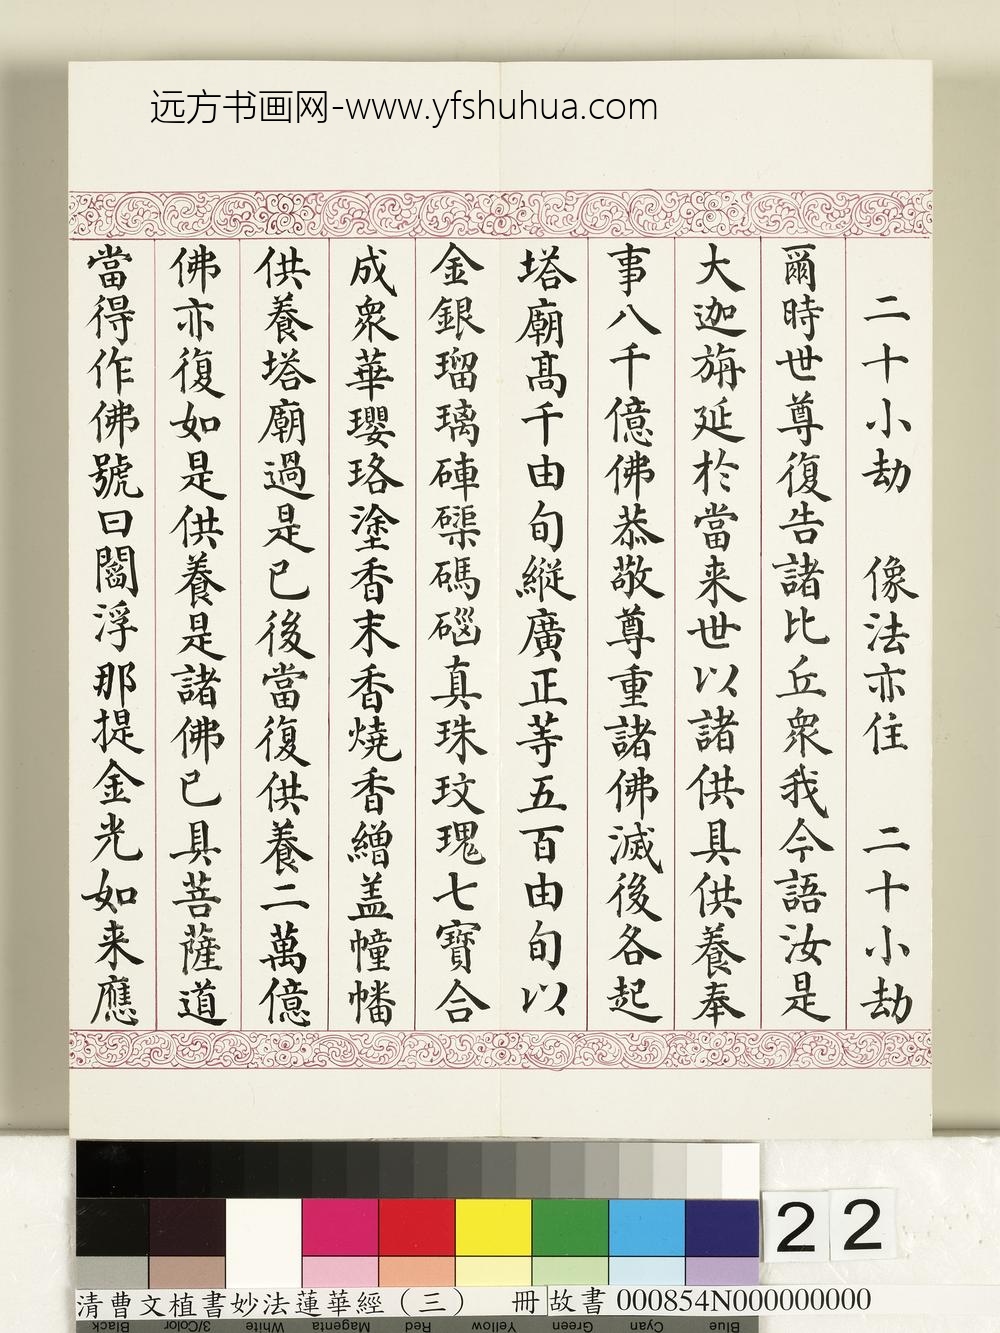 远方书画网-www.yfshuhua.com
二十小劫 像法亦住 二十小劫
爾時世尊復告諸比丘衆我今語汝是
大迦旃延於當来世以諸供具供養奉
事八千億佛恭敬尊重諸佛滅後各起
塔廟髙千由旬縱廣正等五百由旬以
金銀瑠璃硨磲碼碯真珠玫瑰七寶合
成衆華瓔珞塗香末香燒香繒盖幢幡
供養塔廟過是已後當復供養二萬億
佛亦復如是供養是諸佛已具菩薩道
當得作佛號曰閻浮那提金光如来應
22
清曹文植書妙法蓮華經（三） 冊 故書 000854N000000000
Black 3/Color White Magenta Red Yellow Green Cyan Blue